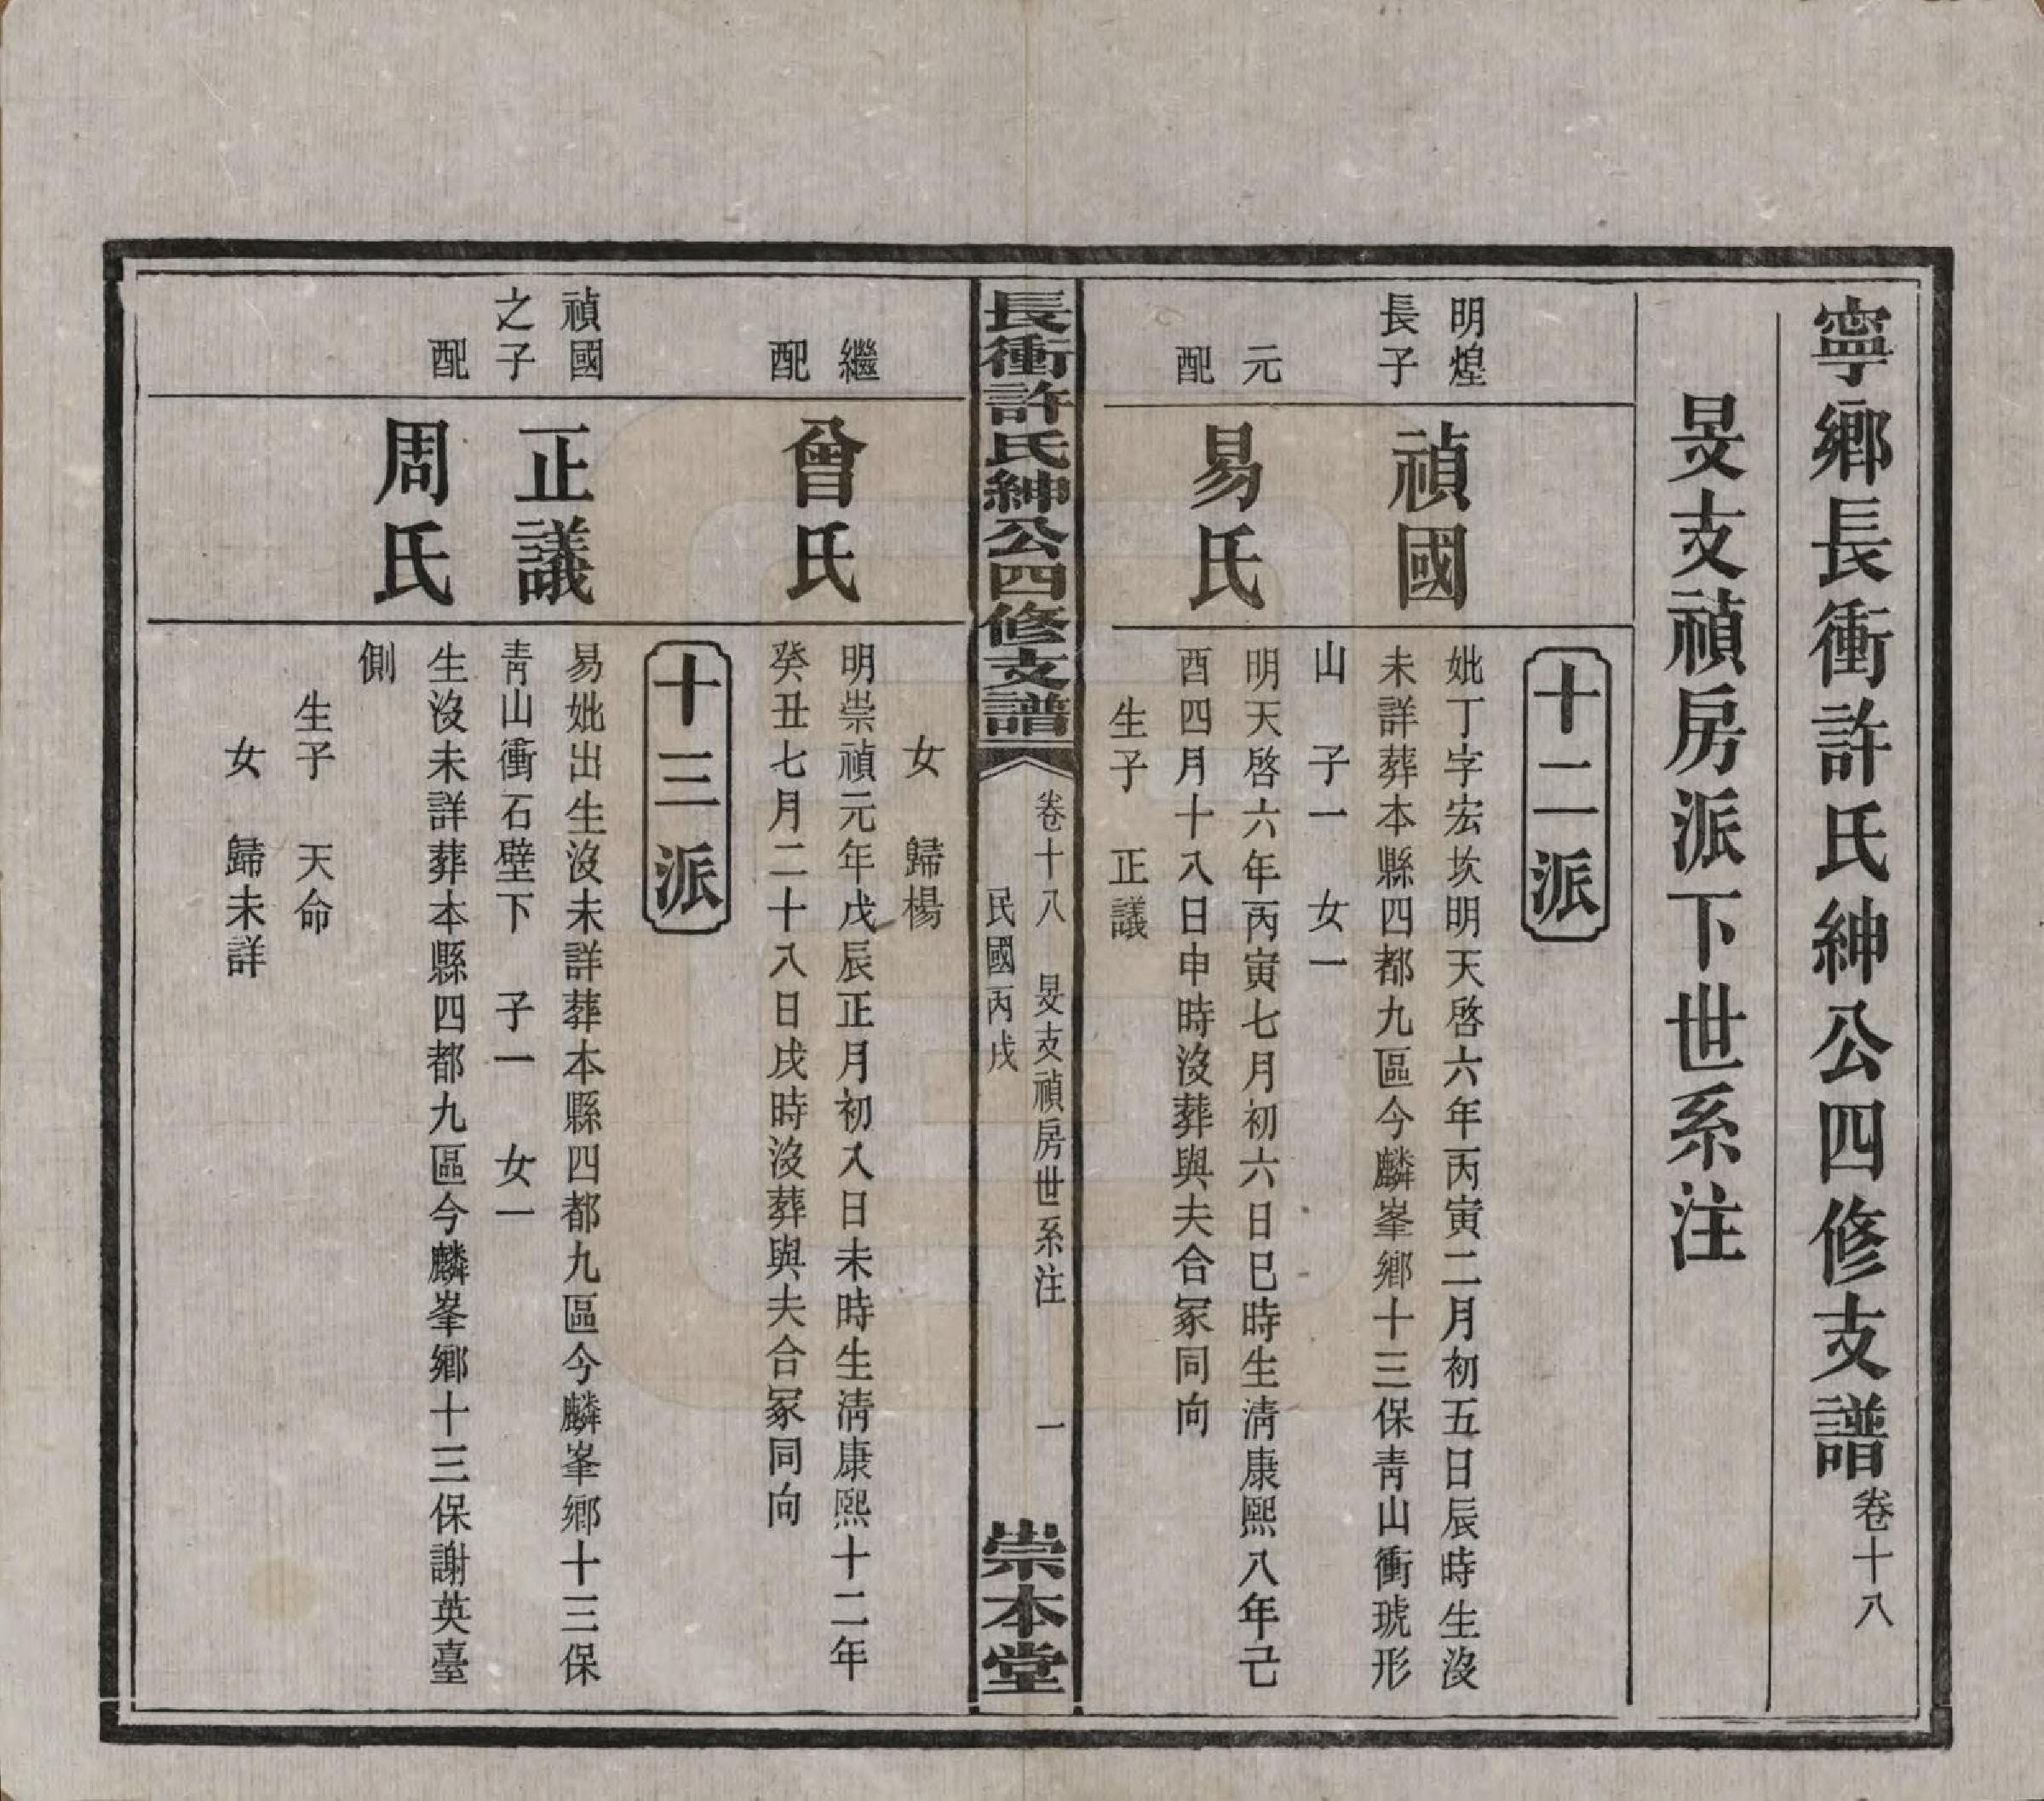 寧鄉長衝許氏紳公四修支譜卷十八
旻支禎房派下世系注
十二派
明煌
長子
禎國
妣丁字宏坎明天啓六年丙寅二月初五日辰時生沒
未詳葬本縣四都九區今麟峯鄉十三保青山衝琥形
山 子一 女一
元
配
易氏
明天啓六年丙寅七月初六日巳時生清康熙八年己
酉四月十八日申時沒葬與夫合冢同向
生子 正議
長衝許氏紳公四修支譜
卷十八 旻支禎房世系注 一
民國丙戌
崇本堂
女 歸楊
繼
配
曾氏
明崇禎元年戊辰正月初入日未時生清康熙十二年
癸丑七月二十八日戌時沒葬與夫合冢同向
十三派
禎國
之子
正議
易妣出生沒未詳葬本縣四都九區今麟峯鄉十三保
青山衝石壁下 子一 女一
配
周氏
生沒未詳葬本縣四都九區今麟峯鄉十三保謝英臺
側
生子 天命
女 歸未詳